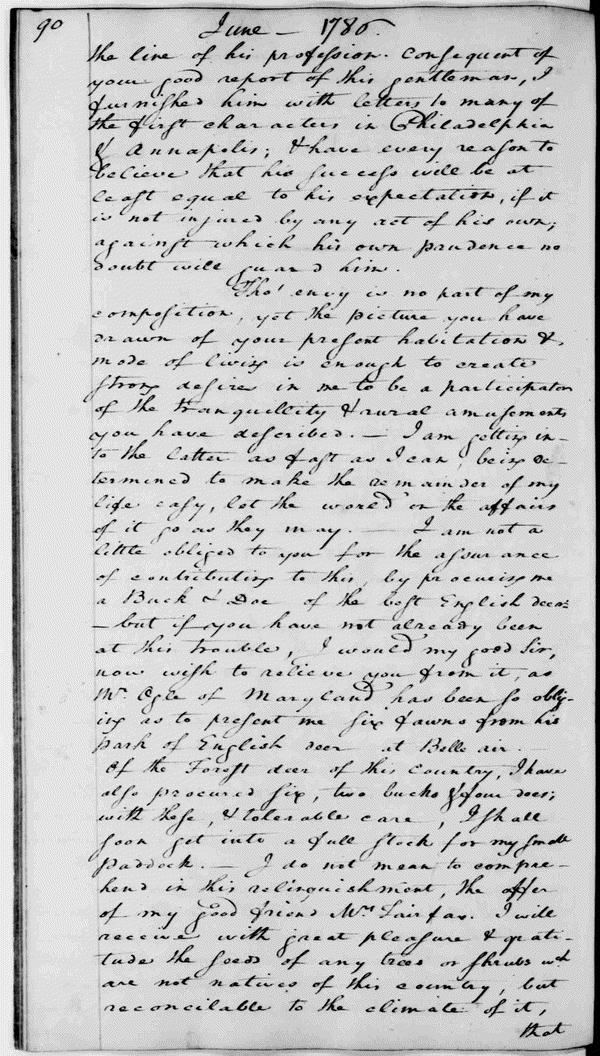 90
June — 1786.
the line of his profession. Consequent of
your good report of this gentleman, I
furnished him with letters to many of
the first characters in Philadelphia
& Annapolis; & have every reason to
believe that his success will be at
least equal to his expectation, if it
is not injured by any act of his own;
against which his own prudence no
doubt will guard him.
Tho' envy is no part of my
composition, yet the picture you have
drawn of your present habitation &
mode of living is enough to create
strong desires in me to be a participator
of the tranquillity & rural amusements
you have described. — I am getting in-
to the latter as fast as I can, being de-
termined to make the remainder of my
life easy, let the world or the affairs
of it go as they may. — I am not a
little obliged to you for the assurance
of contributing to this, by procuring me
a Buck & Doe of the best English deer:
— but if you have not already been
at this trouble, I would my good Sir,
now wish to relieve you from it, as
Mr. Ogle of Maryland has been so oblig-
ing as to present me six fawns from his
park of English deer at Belle air. —
Of the Forest deer of this Country, I have
also procured six, two bucks & four does;
with these, & tolerable care, I shall
soon get into a full stock for my small
paddock. — I do not mean to compre-
hend in this relinquishment, the offer
of my good friend Mrs. Fairfax. I will
receive with great pleasure & grati-
tude the seeds of any trees or shrubs wh
are not natives of this country, but
reconcilable to the climate of it,
that